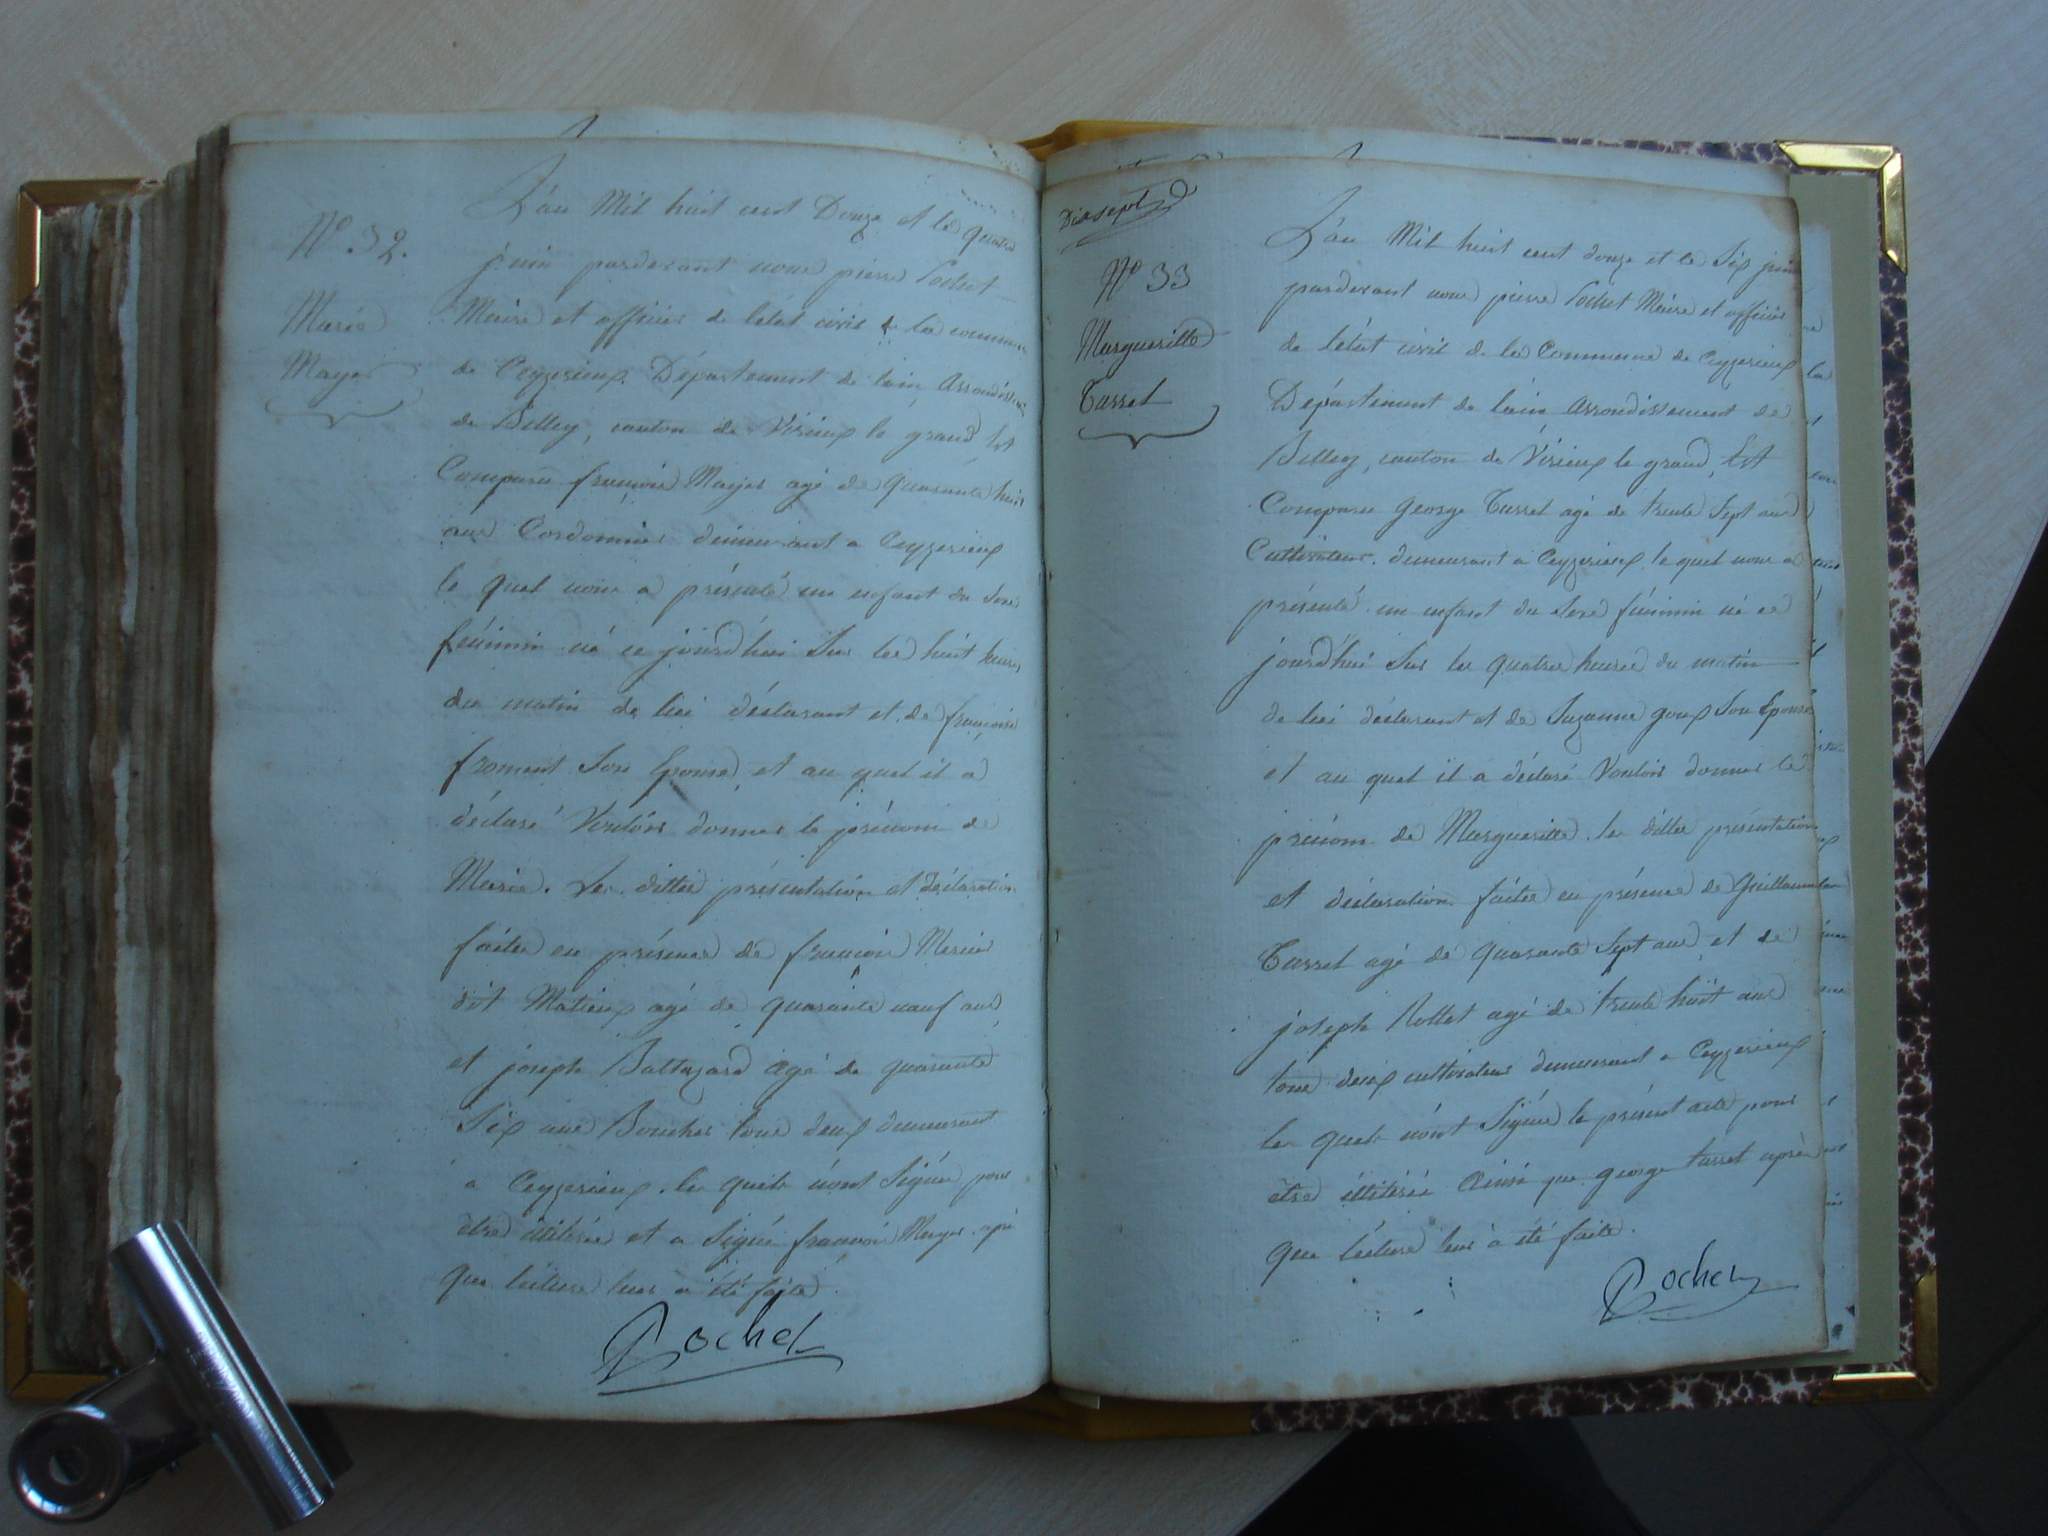 N° 32.
Marie
Mayer
L'an Mil huit cent Douze et le quatre
juin pardevant nous pierre Pochet
Maire et officier de l'état civil de la commune
de Ceyzerieux Département de lain, Arrondissem
de Belley, canton de Virieux le grand Est
Comparu françois Mayer agé de quarante huit
ans Cordonnier demeurant a Ceyzerieux
le quel nous a présenté un enfant du sexe
féminin né ce jourd'hui sur les huit heures
du matin de lui déclarant et de françoise
froment son Epouse, et au quel il a
déclaré Vouloir donner le prénom de
Marie. Les dittes présentation et déclaration
faites en présence de françois Mercier
dit Matieux agé de quarante neuf ans
et joseph Baltazard agé de quarante
six ans Boucher tous deux demeurant
a Ceyzerieux. les quels n'ont signés pour
être illitérés et a signé françois Mayer après
que lecture leur a été faite.
Pochet
Dixsept
N° 33
Margueritte
Tasset
L'an Mil huit cent douze et le six juin
pardevant nous pierre Pochet Maire et officier
de l'état civil de la Commune de Ceyzerieux
Département de lain Arrondissement de
Belley, canton de Virieux le grand, Est
Comparu george Tasset agé de trente sept ans
Cultivateur. demeurant a Ceyzerieux le quel nous a
présenté un enfant du sexe féminin né ce
jourd'hui sur les quatre heures du matin
de lui déclarant et de Suzanne goux son Epouse
et au quel il a déclaré Vouloir donner le
prénom de Margueritte. les dittes présentation
et déclaration faites en présence de Guillaume
Tasset agé de quarante sept ans, et de
joseph Rollet agé de trente huit ans
tous deux cultivateurs demeurant a Ceyzerieux
les quels n'ont signés le présent acte pour
être illitérés Ainsi que george tasset après
que lecture leur à été faite.
Pochet